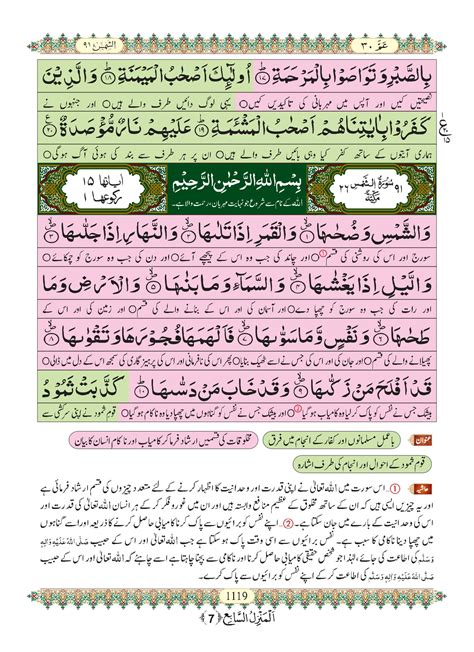 عَمَّ ۳۰
الشَّمْس ۹۱
بِالصَّبْرِ وَ تَوَاصَوْا بِالْمَرْحَمَةِ ﴿۱۷﴾ اُولٰٓىٕكَ اَصْحٰبُ الْمَیْمَنَةِ ﴿۱۸﴾ وَ الَّذِیْنَ
نصیحتیں کیں اور آپس میں مہربانی کی تاکیدیں کیں ○ یہی لوگ دائیں طرف والے ہیں ○ اور جنہوں نے
كَفَرُوْا بِاٰیٰتِنَا هُمْ اَصْحٰبُ الْمَشْـَٔمَةِ ﴿۱۹﴾ عَلَیْهِمْ نَارٌ مُّؤْصَدَةٌ ﴿۲۰﴾
ہماری آیتوں کے ساتھ کفر کیا وہی بائیں طرف والے ہیں ○ ان پر ہر طرف سے بند کی ہوئی آگ ہوگی ○
۹۱ سُوْرَةُ الشَّمْسِ مَكِّیَّةٌ ۲۶
بِسْمِ اللّٰهِ الرَّحْمٰنِ الرَّحِیْمِ
اللہ کے نام سے شروع جو نہایت مہربان، رحمت والا ہے۔
اٰیاتها ۱۵
ركوعها ۱
وَ الشَّمْسِ وَ ضُحٰىهَا ﴿۱﴾ وَ الْقَمَرِ اِذَا تَلٰىهَا ﴿۲﴾ وَ النَّهَارِ اِذَا جَلّٰىهَا ﴿۳﴾
سورج اور اس کی روشنی کی قسم ○ اور چاند کی جب وہ اس کے پیچھے آئے ○ اور دن کی جب وہ سورج کو چمکائے ○
وَ الَّیْلِ اِذَا یَغْشٰىهَا ﴿۴﴾ وَ السَّمَآءِ وَ مَا بَنٰىهَا ﴿۵﴾ وَ الْاَرْضِ وَ مَا
اور رات کی جب وہ سورج کو چھپادے ○ اور آسمان کی اور اس کے بنانے والے کی قسم ○ اور زمین کی اور اس کے
طَحٰىهَا ﴿۶﴾ وَ نَفْسٍ وَّ مَا سَوّٰىهَا ﴿۷﴾ فَاَلْهَمَهَا فُجُوْرَهَا وَ تَقْوٰىهَا ﴿۸﴾
پھیلانے والے کی قسم ○ اور جان کی اور اس کی جس نے اسے ٹھیک بنایا ○ پھر اس کی نافرمانی اور اس کی پرہیزگاری کی سمجھ اس کے دل میں ڈالی ○
قَدْ اَفْلَحَ مَنْ زَكّٰىهَا ﴿۹﴾ وَ قَدْ خَابَ مَنْ دَسّٰىهَا ﴿۱۰﴾ كَذَّبَتْ ثَمُوْدُ
بیشک جس نے نفس کو پاک کرلیا وہ کامیاب ہوگیا ○ اور بیشک جس نے نفس کو گناہوں میں چھپا دیا وہ ناکام ہوگیا ○ قوم ثمود نے اپنی سرکشی سے
عنوان
باعمل مسلمانوں اور کفار کے انجام میں فرق
مخلوقات کی قسمیں ارشاد فرما کر کامیاب اور ناکام انسان کا بیان
قوم ثمود کے احوال اور انجام کی طرف اشارہ
حاشیہ ①… اس سورت میں اللہ تعالیٰ نے اپنی قدرت اور وحدانیت کا اظہار کرنے کے لئے متعدد چیزوں کی قسم ارشاد فرمائی ہے
اور یہ چیزیں ایسی ہیں کہ ان کے ساتھ مخلوق کے عظیم منافع وابستہ ہیں اور ان میں غور و فکر کر کے ہر انسان اللہ تعالیٰ کی قدرت اور اس کی
وحدانیت کے بارے میں جان سکتا ہے۔ ②… اپنے نفس کو برائیوں سے پاک کرنا کامیابی حاصل کرنے کا ذریعہ اور اسے گناہوں میں
چھپا دینا ناکامی کا سبب ہے۔ نفس برائیوں سے اسی وقت پاک ہو سکتا ہے جب اللہ تعالیٰ اور اس کے حبیب صَلَّی اللہُ عَلَیْہِ وَاٰلِہٖ
وَسَلَّمَ کی اطاعت کی جائے، لہٰذا جو شخص حقیقی کامیابی حاصل کرنا اور ناکامی سے بچنا چاہتا ہے اسے چاہئے کہ اللہ تعالیٰ اور اس کے حبیب
صَلَّی اللہُ عَلَیْہِ وَاٰلِہٖ وَسَلَّمَ کی اطاعت کر کے اپنے نفس کو برائیوں سے پاک کرے۔
1119
اَلْمَنْزِلُ السَّابِع ﴿7﴾